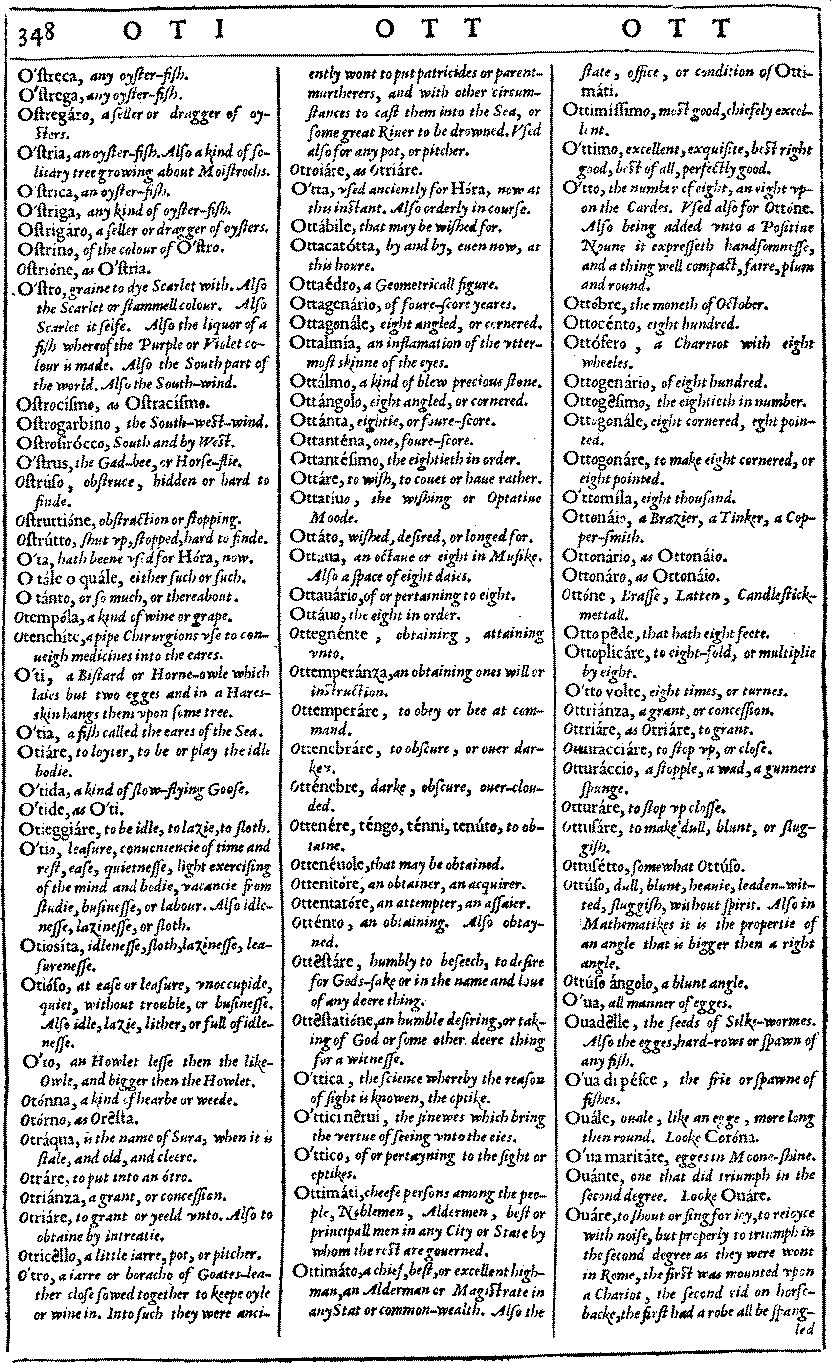 348 O T I O T T O T T
O'ſtreca, any oyſter-fiſh.
O'ſtrega, any oyſter-fiſh.
Oſtregáro, a ſeller or dragger of oy-
ſters.
O'ſtria, an oyſter-fiſh. Alſo a kind of ſo-
licary tree growing about Moiſtrochs.
O'ſtrica, an oyſter-fiſh.
O'ſtriga, any kind of oyſter-fiſh.
Oſtrigáro, a ſeller or dragger of oyſters.
Oſtrino, of the colour of O'ſtro.
Oſtrióne, as O'ſtria.
O'ſtro, graine to dye Scarlet with. Alſo
the Scarlet or ſtammell colour. Alſo
Scarlet it ſelfe. Alſo the liquor of a
fiſh whereof the Purple or Violet co-
lour is made. Alſo the South part of
the world. Alſo the South-wind.
Oſtrociſmo, as Oſtraciſmo.
Oſtrogarbino, the South-weſt-wind.
Oſtroſirócco, South and by Weſt.
O'ſtrus, the Gad-bee, or Horſe-flie.
Oſtrúſo, obſtruce, hidden or hard to
finde.
Oſtruttióne, obſtraction or ſtopping.
Oſtrútto, ſhut vp, ſtopped, hard to finde.
O'ta, hath beene vſed for Hóra, now.
O tále o quále, either ſuch or ſuch.
O tánto, or ſo much, or thereabout.
Otempóla, a kind of wine or grape.
Otenchíte, a pipe Chirurgions vſe to con-
ueigh medicines into the eares.
O'ti, a Biſtard or Horne-owle which
laies but two egges and in a Hares-
skin hangs them vpon ſome tree.
O'tia, a fiſh called the eares of the Sea.
Otiáre, to loyter, to be or play the idle
bodie.
O'tida, a kind of ſlow-flying Gooſe.
O'tide, as O'ti.
Otieggiáre, to be idle, to lazie, to ſloth.
O'tio, leaſure, conueniencie of time and
reſt, eaſe, quietneſſe, light exerciſing
of the mind and bodie, vacancie from
ſtudie, buſineſſe, or labour. Alſo idle-
neſſe, lazineſſe, or ſloth.
Otioſita, idleneſſe, ſloth, lazineſſe, lea-
ſureneſſe.
Otióſo, at eaſe or leaſure, vnoccupide,
quiet, without trouble, or buſineſſe.
Alſo idle, lazie, lither, or full of idle-
neſſe.
O'to, an Howlet leſſe then the like-
Owle, and bigger then the Howlet.
Otónna, a kind of hearbe or weede.
Otórno, as Oreſta.
Otráqua, is the name of Sura, when it is
ſtale, and old, and cleere.
Otráre, to put into an ótro.
Otriánza, a grant, or conceſſion.
Otriáre, to grant or yeeld vnto. Alſo to
obtaine by intreatie.
Otricêllo, a little iarre, pot, or pitcher.
O'tro, a iarre or boracho of Goates-lea-
ther cloſe ſowed together to keepe oyle
or wine in. Into ſuch they were anci-
ently wont to put patricides or parent-
murtherers, and with other circum-
ſtances to caſt them into the Sea, or
ſome great Riuer to be drowned. Vſed
alſo for any pot, or pitcher.
Ottoiáre, as Otriáre.
O'tta, vſed anciently for Hóra, now at
this inſtant. Alſo orderly in courſe.
Ottábile, that may be wiſhed for.
Ottacatótta, by and by, euen now, at
this houre.
Ottaédro, a Geometricall figure.
Ottagenário, of foure-ſcore yeares.
Ottagonále, eight angled, or cornered.
Ottalmía, an inflamation of the vtter-
moſt skinne of the eyes.
Ottálmo, a kind of blew precious ſtone.
Ottángolo, eight angled, or cornered.
Ottánta, eightie, or foure-ſcore.
Ottanténa, one, foure-ſcore.
Ottantéſimo, the eightieth in order.
Ottáre, to wiſh, to couet or haue rather.
Ottatiuo, the wiſhing or Optatiue
Moode.
Ottáto, wiſhed, deſired, or longed for.
Ottaua, an octaue or eight in Muſike.
Alſo a ſpace of eight daies.
Ottauário, of or pertaining to eight.
Ottáuo, the eight in order.
Ottegnénte, obtaining, attaining
vnto.
Ottemperánza, an obtaining ones will or
inſtruction.
Ottemperáre, to obey or bee at com-
mand.
Ottenebráre, to obſcure, or ouer dar-
ken.
Otténebre, darke, obſcure, ouer-clou-
ded.
Ottenére, téngo, ténni, tenúto, to ob-
taine.
Ottenéuole, that may be obtained.
Ottenitóre, an obtainer, an acquirer.
Ottentatóre, an attempter, an aſſaier.
Otténto, an obtaining. Alſo obtay-
ned.
Otteſtáre, humbly to beſeech, to deſire
for Gods-ſake or in the name and loue
of any deere thing.
Otteſtatióne, an humble deſiring, or tak-
ing of God or ſome other deere thing
for a witneſſe.
O'ttica, the ſcience whereby the reaſon
of ſight is knowen, the optike.
O'ttici nêrui, the ſinewes which bring
the vertue of ſeeing vnto the eies.
O'ttico, of or pertayning to the ſight or
optikes.
Ottimáti, cheefe perſons among the peo-
ple, Noblemen, Aldermen, beſt or
principall men in any City or State by
whom the reſt are gouerned.
Ottimáto, a chief, beſt, or excellent high-
man, an Alderman or Magiſtrate in
any Stat or common-wealth. Alſo the
ſtate, office, or condition of Otti-
máti.
Ottimíſſimo, moſt good, chiefely excel-
lent.
O'ttimo, excellent, exquiſite, beſt right
good, beſt of all, perfectly good.
O'tto, the number of eight, an eight vp-
on the Cardes. Vſed alſo for Ottóne.
Alſo being added vnto a Poſitiue
Noune it expreſſeth handſomneſſe,
and a thing well compact, faire, plum
and round.
Ottóbre, the moneth of October.
Ottocénto, eight hundred.
Ottófero, a Charriot with eight
wheeles.
Ottogenário, of eight hundred.
Ottogêſimo, the eightieth in number.
Ottogonále, eight cornered, eght poin-
ted.
Ottogonáre, to make eight cornered, or
eight pointed.
O'ttomíla, eight thouſand.
Ottonáio, a Brazier, a Tinker, a Cop-
per-ſmith.
Ottonário, as Ottonáio.
Ottonáro, as Ottonáio.
Ottóne, Braſſe, Latten, Candleſtick-
mettall.
Otto pêde, that hath eight feete.
Ottoplicáre, to eight-fold, or multiplie
by eight.
O'tto volte, eight times, or turnes.
Ottriánza, a grant, or conceſſion.
Ottriáre, as Otriáre, to grant.
Otturacciáre, to ſtop vp, or cloſe.
Otturáccio, a ſtopple, a wad, a gunners
ſpunge.
Otturáre, to ſtop vp cloſſe.
Ottuſáre, to make dull, blunt, or ſlug-
giſh.
Ottuſétto, ſomewhat Ottúſo.
Ottúſo, dull, blunt, heauie, leaden-wit-
ted, ſluggiſh, without ſpirit. Alſo in
Mathematikes it is the propertie of
an angle that is bigger then a right
angle.
Ottúſo ángolo, a blunt angle.
O'ua, all manner of egges.
Ouadêlle, the ſeeds of Silke-wormes.
Alſo the egges, hard-rows or ſpawn of
any fiſh.
O'ua di péſce, the frie or ſpawne of
fiſhes.
Ouále, ouale, like an egge, more long
then round. Looke Coróna.
O'ua maritáte, egges in Moone-ſhine.
Ouánte, one that did triumph in the
ſecond degree. Looke Ouáre.
Ouáre, to ſhout or ſing for ioy, to reioyce
with noiſe, but properly to triumph in
the ſecond degree as they were wont
in Rome, the firſt was mounted vpon
a Chariot, the ſecond rid on horſe-
backe, the firſt had a robe all be ſpang-
led